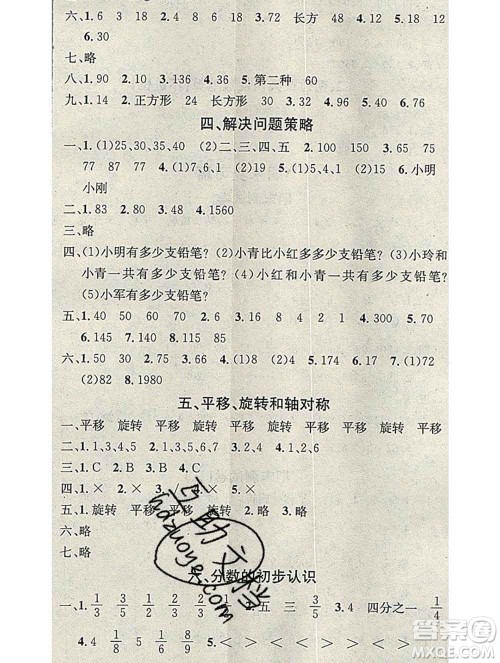 六、1.6 3 18 2.8 24 3.72 长方 4.48 5.18 32
6.30
七、略
八、1.90 2.10 3.136 4.36 5.第二种 60
九、1.14 2.正方形 24 长方形 30 3.40 4.66 5.26
四、解决问题策略
一、1.(1)25,30,35,40 (2)二、三、四、五 2.100 150 3.65
75 77 87 77 4.(1)27,72 (2)19 5.(1)7 (2)15 6.小明
小刚
二、1.83 2.40 3.48 4.1560
三、略
四、(1)小明有多少支铅笔? (2)小青比小红多多少支铅笔? (3)小玲和
小青一共有多少支铅笔? (4)小红和小青一共有多少支铅笔?
(5)小军有多少支铅笔?
五、1.40 70 2.630 3.16 8 4 2 1 4.200 5.168
6.145 7.140 8.115 85
六、1.50 30 2.40 3.40 4.(1)8 (2)24 5.160 6.360 7.(1)72
(2)82 8.1980
五、平移、旋转和轴对称
一、平移 旋转 平移 旋转 平移 平移 旋转 旋转
二、1.2,3,4,5 1,6 2.1,3,5,6,7 3.1,2,4,6 4.2
三、1.C 2.B 3.B
四、1.× 2.× 3.√ 4.×
五、1.旋转 平移 平移 旋转 2.略 3.略 4.略
六、略
七、略
六、分数的初步认识
一、1. 1/3 2/3 2. 3/5 五 三 3/5 3.4 四分之一 1/4
4.4 1/8 5 1/6 1/9 5.< > < > < > > <
互助文档
hdzuoye.com
答案圈
MXQE.COM